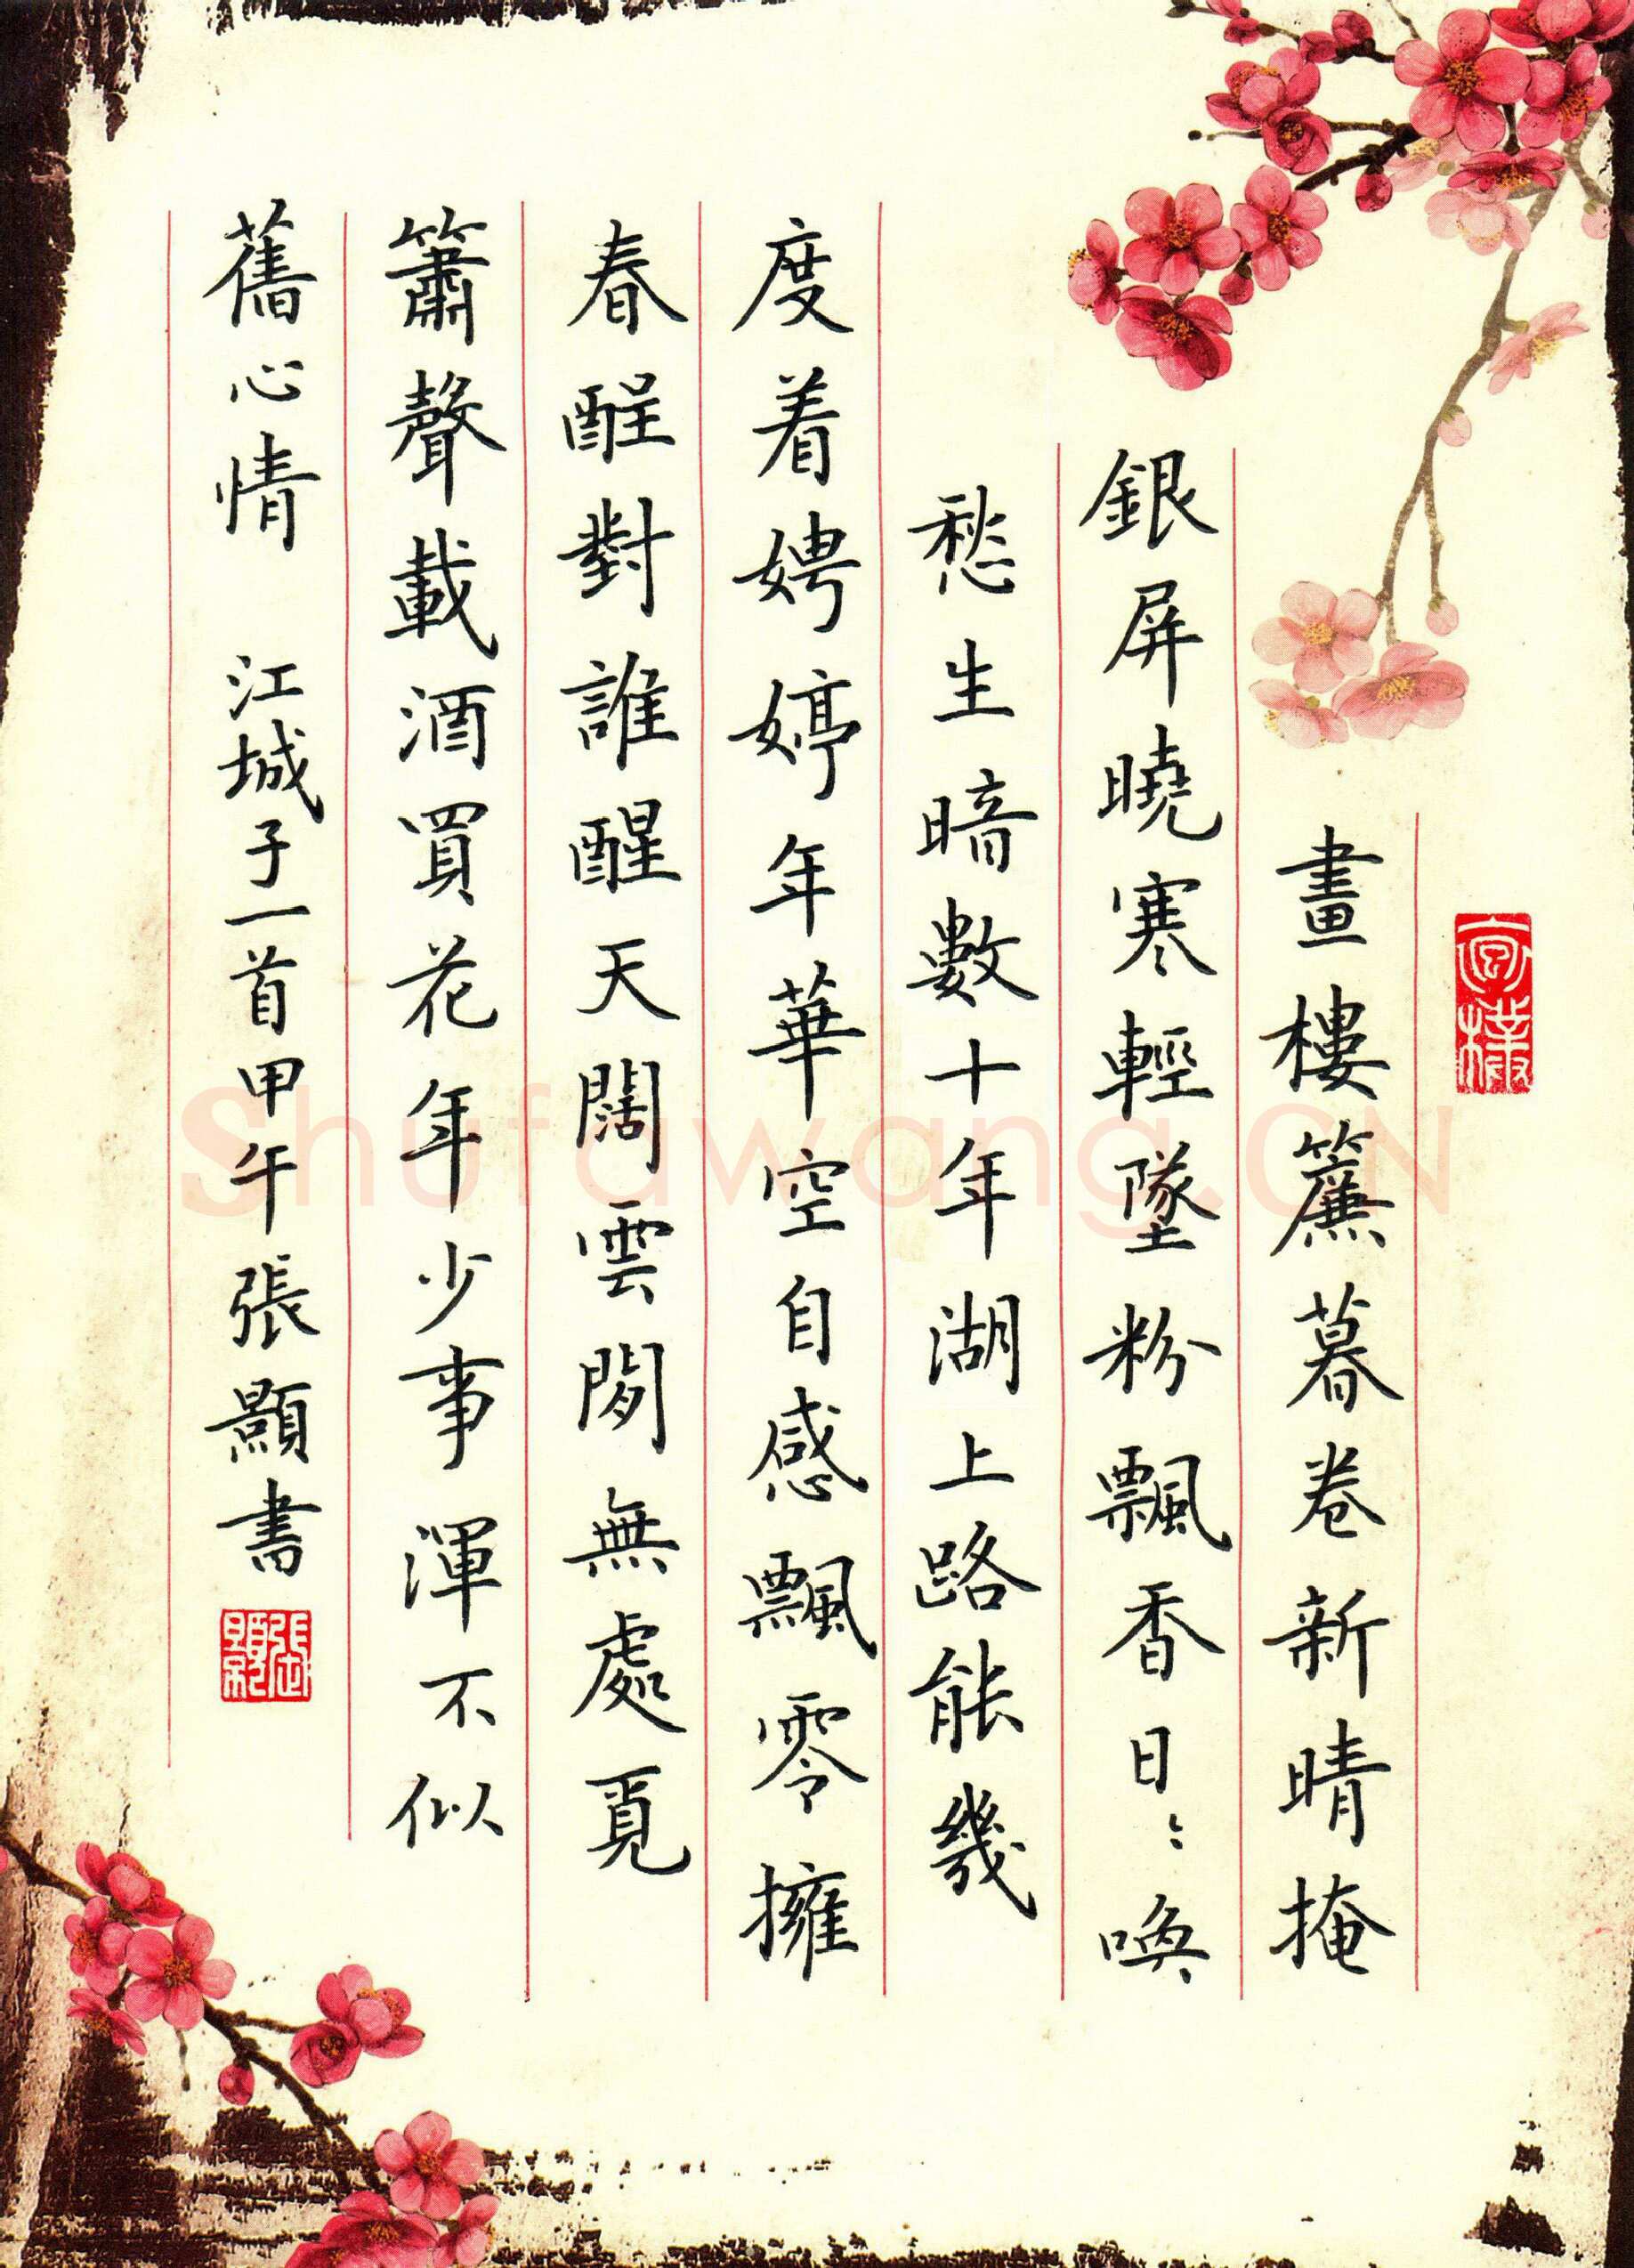 畫樓簾暮卷新晴掩
銀屏曉寒輕墜粉飄香日〻喚
愁生暗數十年湖上路能幾
度着娉婷年華空自感飄零擁
春酲對誰醒天闊雲閒無處覓
簫聲載酒買花年少事渾不似
舊心情 江城子一首甲午張顯書
張顯
Shufawang.CN